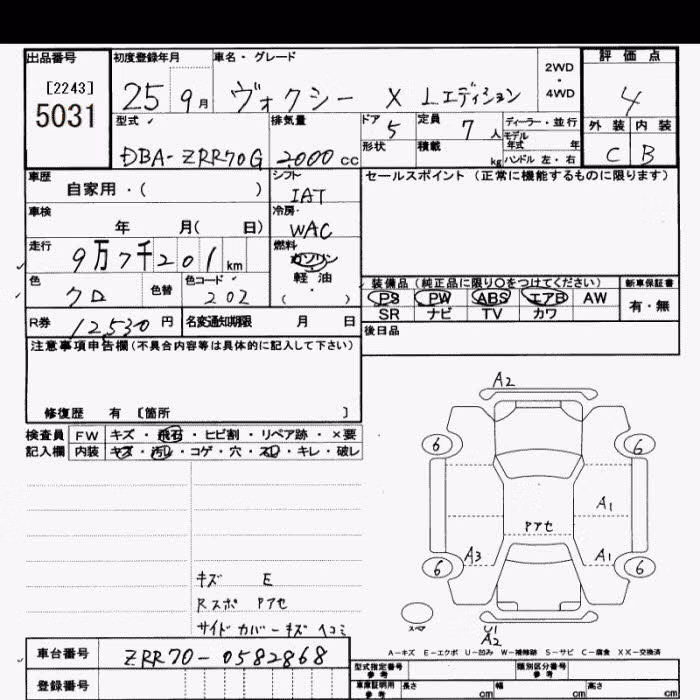 出品番号 初度登録年月 車名・グレード 2WD・4WD 評価点
[2243]
5031
25 9月 ヴォクシー X Lエディション 4
型式 排気量 ドア 定員 ディーラー・並行 外装 内装
DBA-ZRR70G 2000cc 5 7人 モデル年式 年 C B
形状 積載 kg ハンドル 左・右
車歴 シフト セールスポイント (正常に機能するものに限ります)
自家用・( ) IAT
車検 冷房
年 月( 日) WAC
走行 燃料
9万7千201km ガソリン
色 色替 色コード 軽油 装備品 (純正品に限り○をつけてください) 新車保証書
クロ 202 ( ・ ) PS PW ABS エアB AW 有・無
R券 12530円 名変通知期限 月 日 SR ナビ TV カワ
注意事項申告欄(不具合内容等は具体的に記入して下さい) 後日品
修復歴 有 [箇所 ]
検査員 FW キズ・飛石・ヒビ割・リペア跡・×要
記入欄 内装 キズ・汚れ・コゲ・穴・スレ・キレ・破レ
A2
6 6
A1
Pアセ
A3 A1
6 6
キズ E
Rスポ Pアセ
サイドカバーキズヘコミ
スペア
U1
A2
A-キズ E-エクボ U-凹み W-補修跡 S-サビ C-腐食 XX-交換済
車台番号 ZRR70-0582868
登録番号
型式指定番号 参考 類別区分番号 参考
車庫証明用 参考 長さ cm 幅 cm 高さ cm